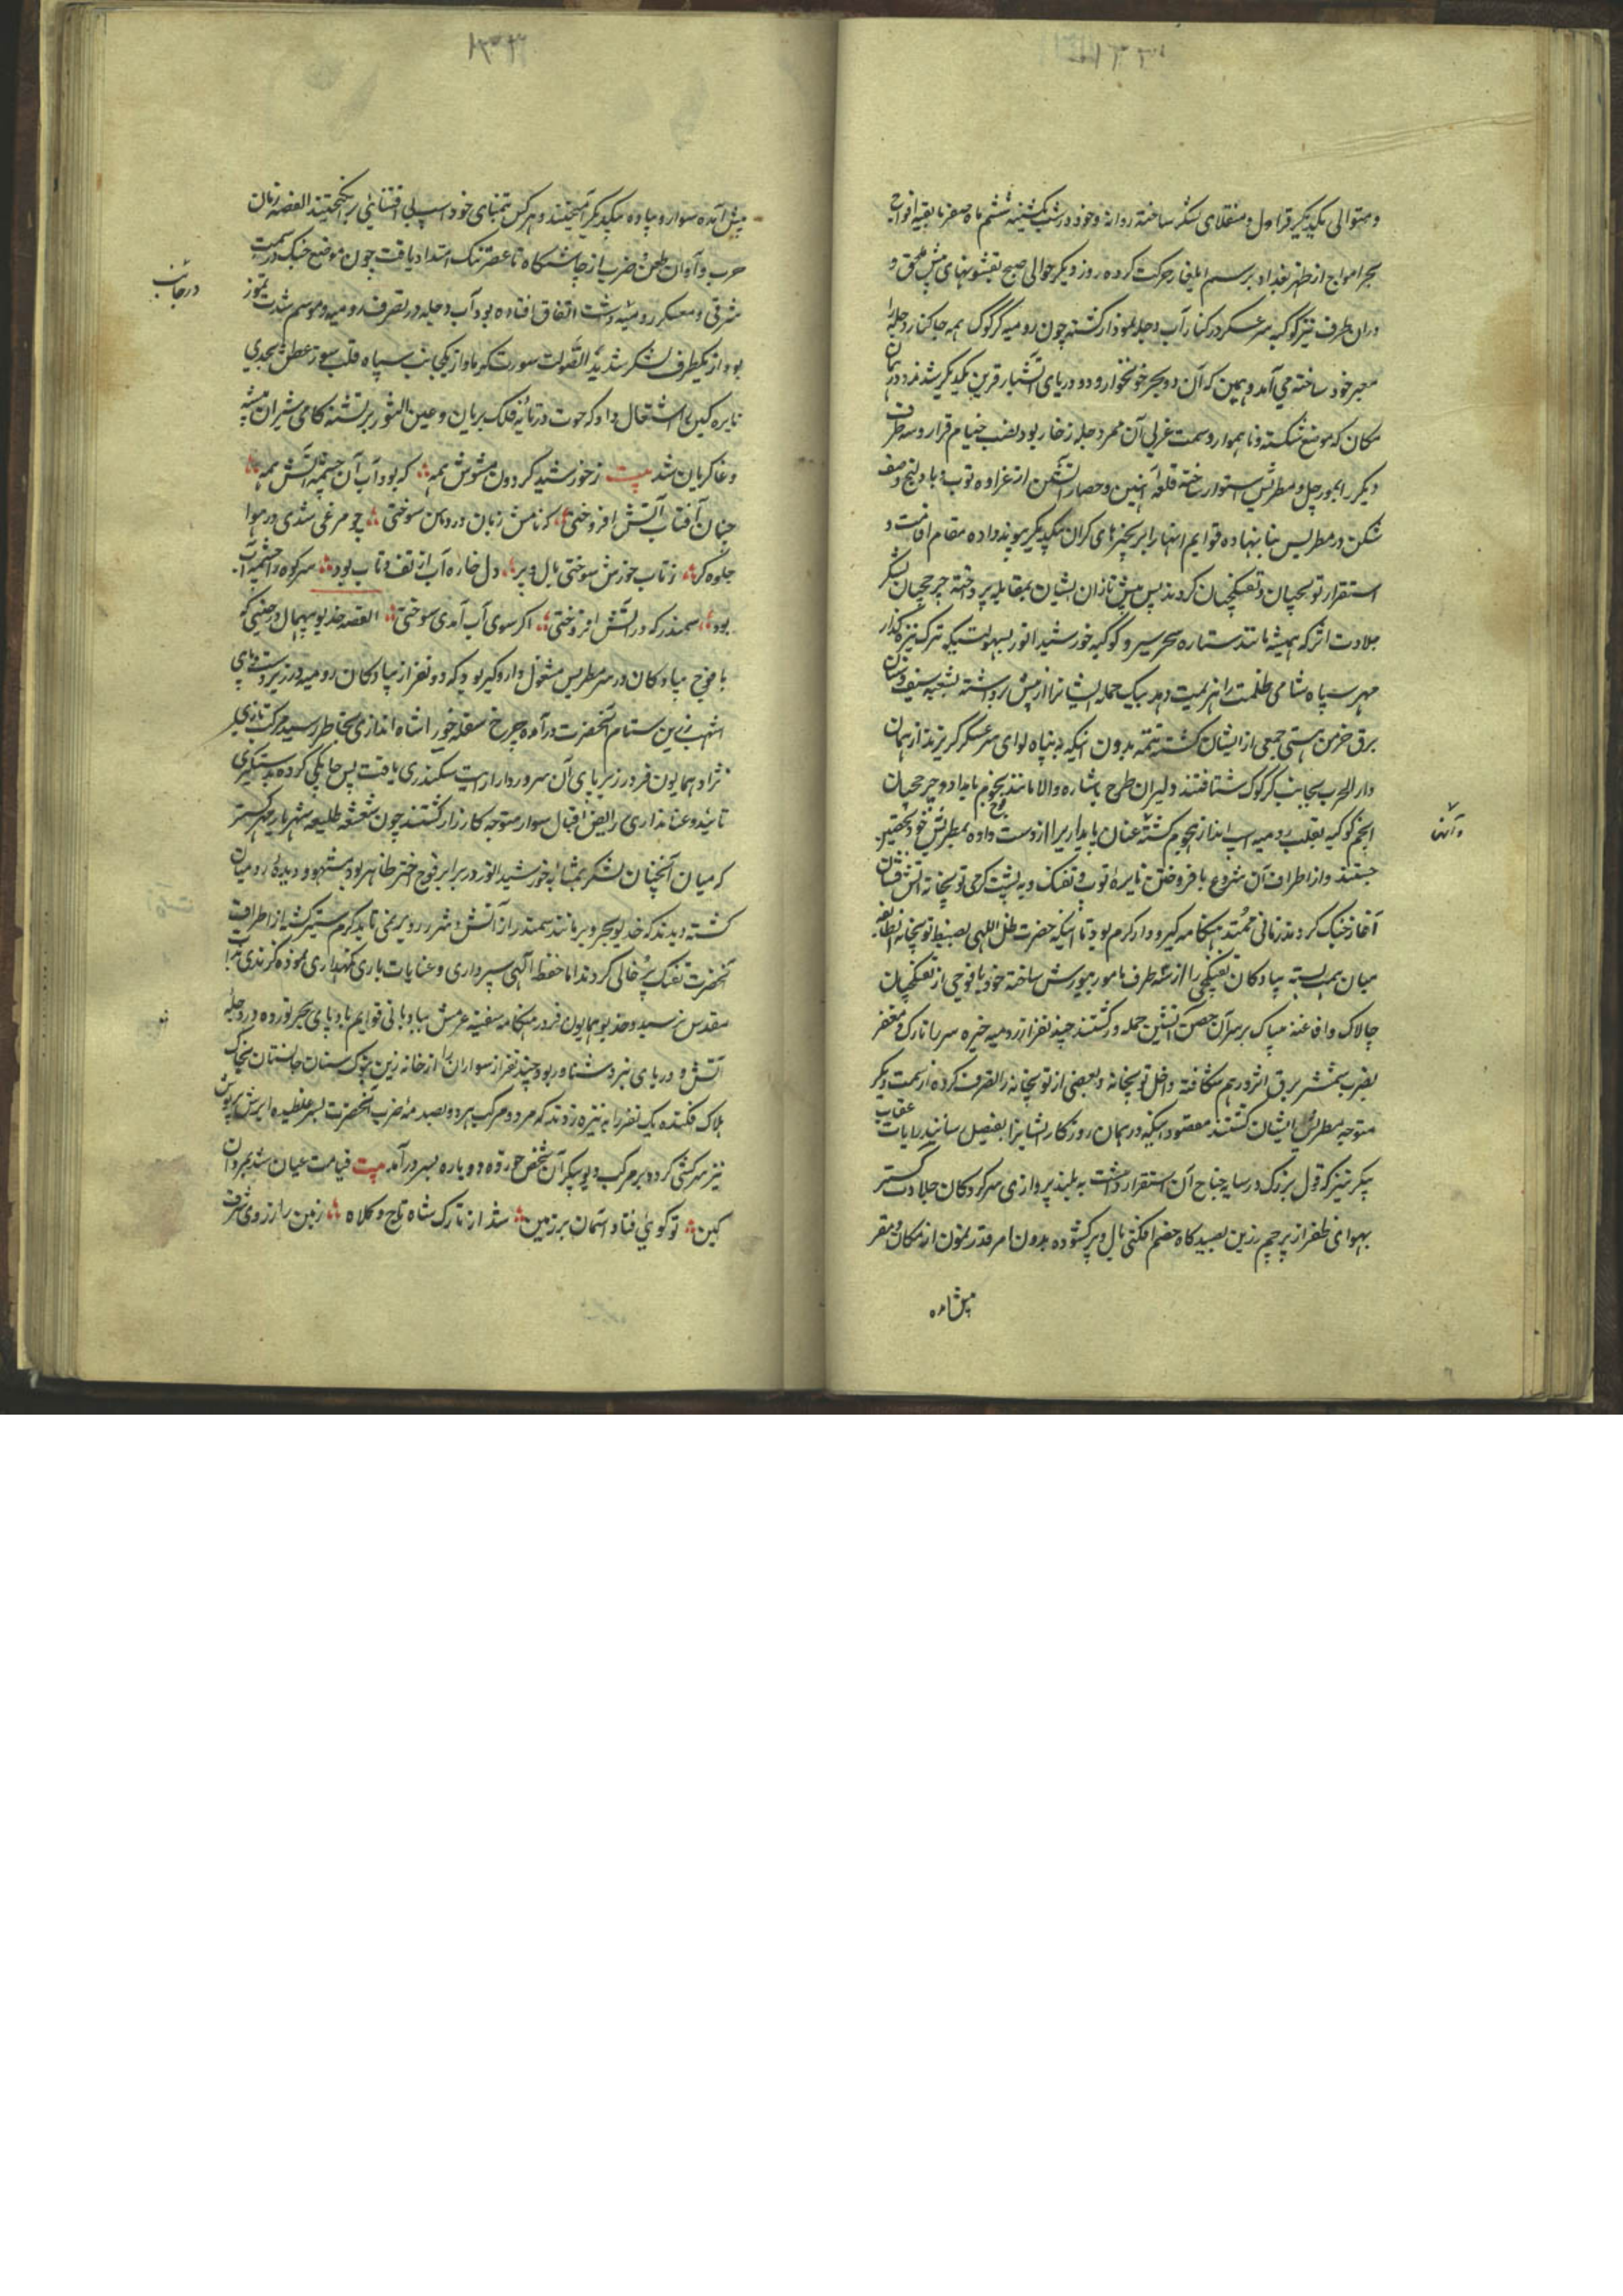 و متوالی یکدیگر قراول و منقلای لشکر ساخته روانه و خود در شب یکشنبه ششم ماه صفر با بقیه افواج
بحر امواج از ظهر بغداد برسم ایلغار حرکت کرده روز دیگر حوالی صبح بقشونهای پیش ملحق و
در ان طرف نیز کوکبه سرعسکر در کنار آب دجله نمودار گشته چون رومیه از کرکوک همه جا کنار دجله را
معبر خود ساخته می آمد و همین که آن دو بحر خونخوار و دو دریای آتشبار قرین یکدیگر شدند در همان
مکان که موضع شکسته و ناهموار و سمت غربی آن ممر دجله زخار بود نصب خیام قرار و سه طرف
دیگر را بمورچل و مطریس استوار ساخته قلعه آهنین و حصار آتشین از عراده توپ و بادلیج صف
شکن در مطریس بنا نهاده قوایم انها را بزنجیرهای گران بیکدیگر پیوند داده مقام اقامت و
استقرار توپچیان و تفنگچیان کردند پس پیش تازان ایشان بمقابله پرداخته چرخچیان لشکر
جلادت اثر که همیشه مانند ستاره سحر سیر و کوکبه خورشید انور بسهولت یکه ترک نیزه گذار
مهر سپاه شامی ظلمت را هزیمت دهد بیک حمله ایشانرا از پیش برداشته بشعبه سیف و سنان
برق خرمن هستی جمعی از ایشان گشته تتمه بدون اینکه در پناه لوای سرعسکر گریزند از همان
دار الحرب بجانب کرکوک شتافتند دلیران طرح باشاره والا مانند نجوم بامداد و چرخچیان
انجم کوکبه بقلب رومیه اسب انداز هجوم گشته عنان پایداری را از دست داده بمطریس خود تحصن
جستند و از اطراف آن شروع بافروختن نایره توپ و تفنگ و به پشت گرمی توپخانه آتش فشان
آغاز جنگ کردند زمانی ممتد هنگامه گیر و دار گرم بود تا اینکه حضرت ظل اللهی بضبط توپخانه انطایفه
میان همت بسته پیادگان تفنگچی را از سه طرف مامور بیورش ساخته خود با فوجی از تفنگچیان
چالاک و افاغنه بیباک بر سر آن حصن آتشین حمله ور گشتند چند نفر از رومیه خیره سر را تارک و مغفر
بضرب شمشیر برق اثر در هم شکافته داخل توپخانه و بعضی از توپخانه را تصرف کرده از سمت دیگر
متوجه مطریس ایشان گشتند مقصود اینکه در همان روز کار ایشانرا بفیصل رسانند رایات عقاب
پیکر نیز که قول بزرگ در سایه جناح آن استقرار داشت به بلند پروازی سرکردگان جلادت گستر
بهوای ظفر از پرچم زرین بصیدگاه خصم افکنی بال و پر گشوده بدون امر قدر نمون از مکان و مقر
پیش آمده
پیش آمده سوار و پیاده بیکدیگر آمیختند و هر کس بتمنای خود اسب بی اعتنایی برانگیختند القصه زمان
حرب و آوان طعن و ضرب از چاشتگاه تا عصر تنگ امتداد یافت چون موضع جنگ در سمت
در جانب
شرقی و معسکر رومیه دشت اتفاق افتاده بود آب دجله در تصرف رومیه و موسم شدت تموز
بود از یکطرف لشکر شدید الصولت سورت گرما و از یکجانب سپاه قلب سوز عطش بحدی
نایره کین را اشتعال داد که حوت در تابه فلک بریان و عین الثور بر تشنه کامی شیران بیشه
وغا گریان شد بیت ز خورشید گردون مشوش همه که بود آب آن چشمه آتش همه
چنان آفتاب آتش افروختی که نامش زبان در دهن سوختی چو مرغی شدی در هوا
جلوه گر ز تاب خورش سوختی بال و پر دل خاره آب از تف و تاب بود سر کوه و چشمه آب
بود سمندر که در آتش افروختی اگر سوی آب آمدی سوختی القصه خدیو بیهمال در حینی که
با فوج پیادگان در سر مطریس مشغول دار و گیر بود که دو نفر از پیادگان رومیه در زیر دست و پای
اشهب زرین ستام آنحضرت در آمده چرخ سفله خور انشاه اندازی بخاطر رسید مرکب تازی
نژاد همایون فرو در زیر پای آن سرور دارا رایت سکندری یافت پس جانکی کرده بدستگیری
تائید و عنانداری رایض اقبال سوار متوجه کارزار گشتند چون شعشعه طلیعه شهریار مهر گستر
که میان آنچنان لشکر بمثابه خورشید انور در برابر فوج اختر ظاهر بود مشهود دیده رومیان
گشته دیدند که خدیو بحر و بر مانند سمندر از آتش و شرر رو بر نمی تابد گرم ستیز گشته از اطراف
آنحضرت تفنگ پر خالی کردند اما حفظ الهی سپرداری و عنایات باری نگهداری نموده گزندی بذات
مقدس نرسید و خدیو همایون فر در هنگامه سفینه عزمش ببادبانی قوایم بادپای بحر نورد در دجله
آتش و دریای نبرد شناور بود چند نفر از سواران را از خانه زین بنوک سنان جانستان بخاک
هلاک فکنده یک نفر را به نیزه زدند که مرد و مرکب هر دو بصدمه ضرب آنحضرت بسر غلطیده ابرش همایون
نیز سرکشی کرده بر مرکب دیو پیکر آن شخص خورده دوباره بسر در آمد بیت قیامت عیان شد بمردان
کین تو گویی فتاد آسمان بر زمین شد از تارک شاه تاج و کلاه زمین را ز روی شرف